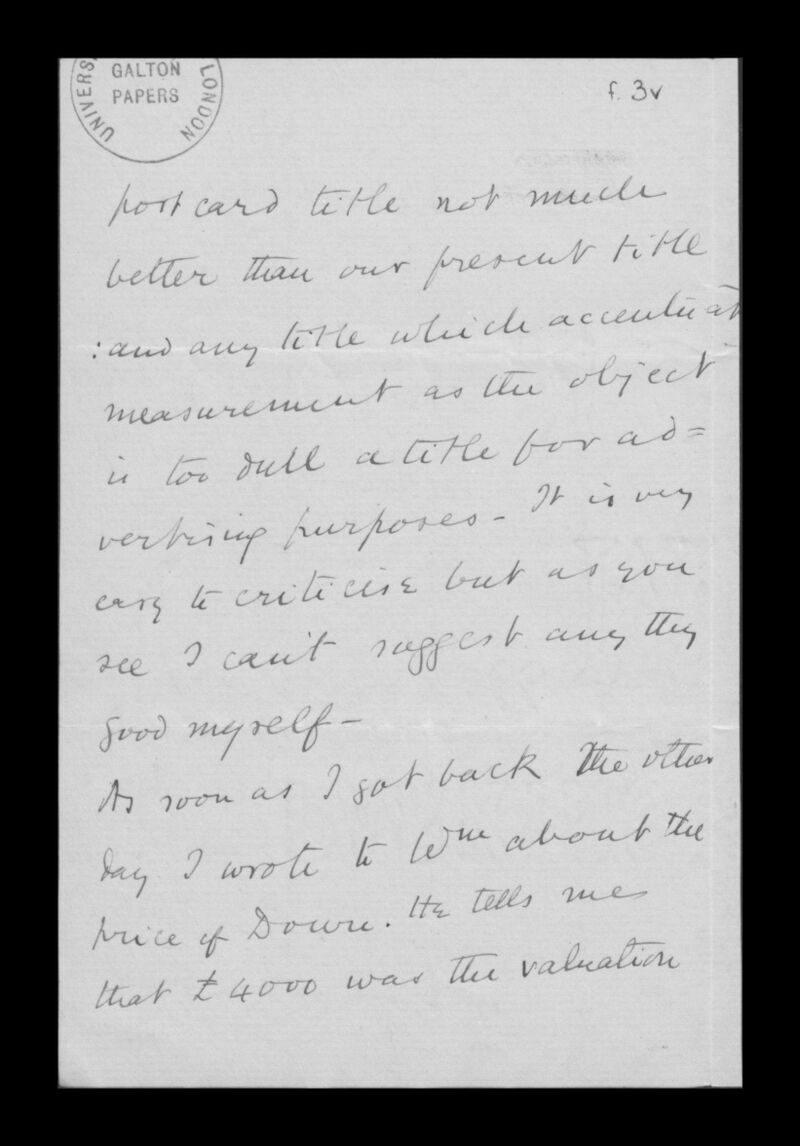 UNIVERS LONDON
GALTON
PAPERS
f. 3v
post card title not much
better than our present title
: and any title which accentuat
measurement as the object
is too dull a title for ad=
vertising purposes - It is very
easy to criticise but as you
see I can't suggest any thg
good myself -
As soon as I got back the other
day I wrote to Wm about the
price of Down. He tells me
that £4000 was the valuation